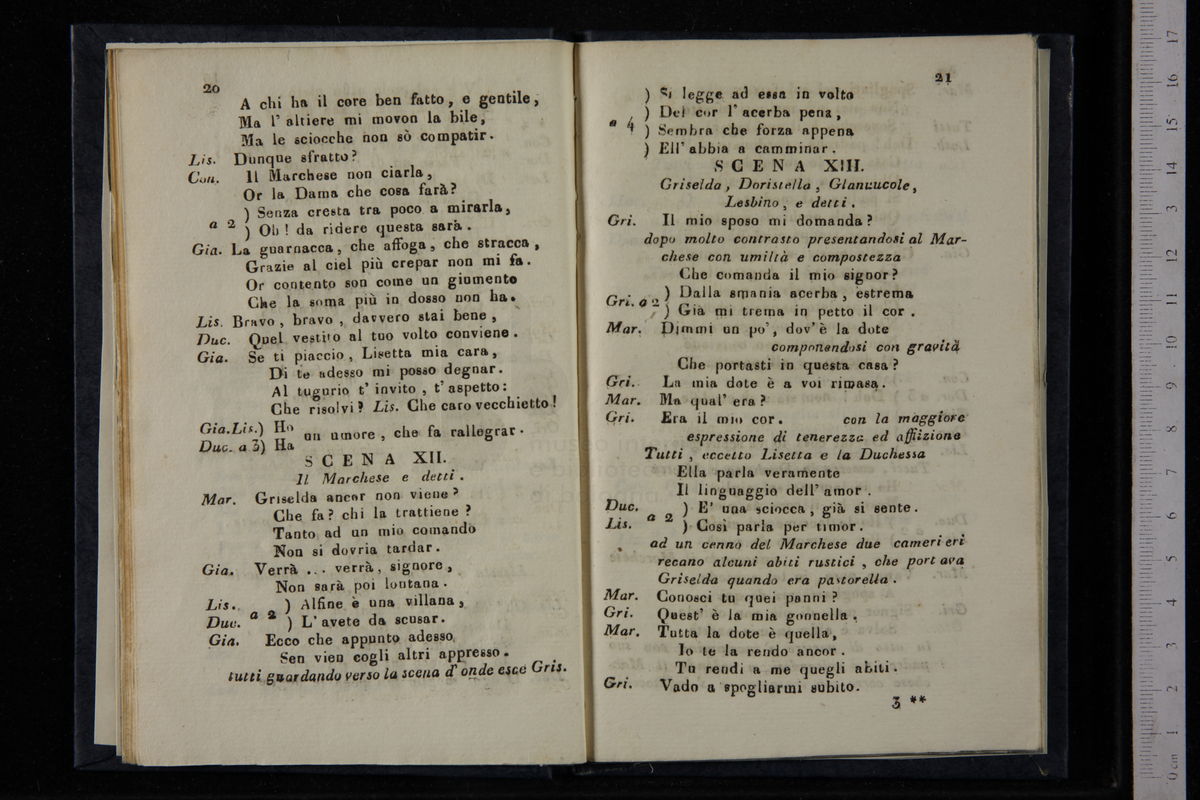 20
A chi ha il core ben fatto, e gentile,
Ma l' altiere mi movon la bile,
Ma le sciocche non sò compatir.
Lis. Dunque sfratto?
Con. Il Marchese non ciarla,
Or la Dama che cosa farà?
) Senza cresta tra poco a mirarla,
a 2
) Oh! da ridere questa sarà.
Gia. La guarnacca, che affoga, che stracca,
Grazie al ciel più crepar non mi fa.
Or contento son come un giumento
Che la soma più in dosso non ha.
Lis. Bravo, bravo, davvero stai bene,
Duc. Quel vestito al tuo volto conviene.
Gia. Se ti piaccio, Lisetta mia cara,
Di te adesso mi posso degnar.
Al tugurio t' invito, t' aspetto:
Che risolvi? Lis. Che caro vecchietto!
Gia.Lis.) Ho
un umore, che fa rallegrar.
Duc. a 3) Ha
SCENA XII.
Il Marchese e detti.
Mar. Griselda ancor non viene?
Che fa? chi la trattiene?
Tanto ad un mio comando
Non si dovria tardar.
Gia. Verrà ... verrà, signore,
Non sarà poi lontana.
Lis. ) Alfine è una villana,
a 2
Duc. ) L' avete da scusar.
Gia. Ecco che appunto adesso
Sen vien cogli altri appresso.
tutti guardando verso la scena d' onde esce Gris.
21
) Si legge ad essa in volto
) Del cor l' acerba pena,
a 4
) Sembra che forza appena
) Ell' abbia a camminar.
SCENA XIII.
Griselda, Doristella, Giannucole,
Lesbino, e detti.
Gri. Il mio sposo mi domanda?
dopo molto contrasto presentandosi al Mar-
chese con umiltà e compostezza
Che comanda il mio signor?
) Dalla smania acerba, estrema
Gri. a 2
) Già mi trema in petto il cor.
Mar. Dimmi un po', dov' è la dote
componendosi con gravità
Che portasti in questa casa?
Gri. La mia dote è a voi rimasa.
Mar. Ma qual' era?
Gri. Era il mio cor. con la maggiore
espressione di tenerezza ed afflizione
Tutti, eccetto Lisetta e la Duchessa
Ella parla veramente
Il linguaggio dell' amor.
Duc. ) E' una sciocca, già si sente.
a 2
Lis. ) Così parla per timor.
ad un cenno del Marchese due camerieri
recano alcuni abiti rustici, che portava
Griselda quando era pastorella.
Mar. Conosci tu quei panni?
Gri. Quest' è la mia gonnella.
Mar. Tutta la dote è quella,
Io te la rendo ancor.
Tu rendi a me quegli abiti.
Gri. Vado a spogliarmi subito.
3 **
0 cm 1 2 3 4 5 6 7 8 9 10 11 12 13 14 15 16 17